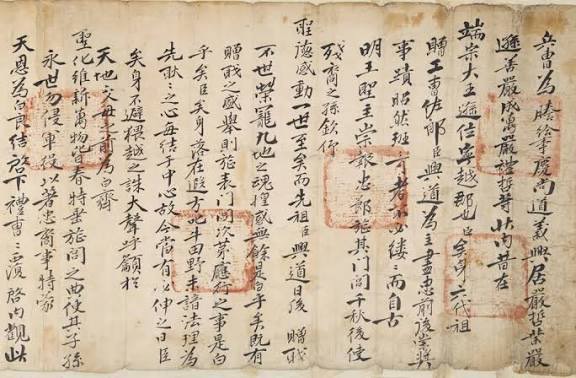 兵曹為謄給事慶尚道義興居嚴哲業嚴
遜善嚴成萬嚴禮哲等狀內昔在
端宗大王遜位寧越郡也臣矣身六代祖
贈工曹佐郎臣興道為主盡忠前後崇奬
事蹟昭然班班可考者不必縷縷而自古
明王聖主崇奬忠節旌其門閭千秋後使
殘裔之孫欽仰
聖德感動一世至矣而先祖臣興道日後贈戝
不世榮寵九地之魂惶感無餘是白乎矣既有
贈戝之盛舉則旌表門閭次第應行之事是白
乎矣臣矣身落在遐方北斗田野未諳法理為
先耿耿之心每結于中心故今當有必伸之日臣
矣身不避猥越之誅大聲呼籲於
天地父母之前為白齊
聖化維新萬物皆春特垂旌閭之典使其子孫
永世勿侵軍役以著忠裔事特蒙
天恩為白良結啓下禮曹曹覆啓內觀此